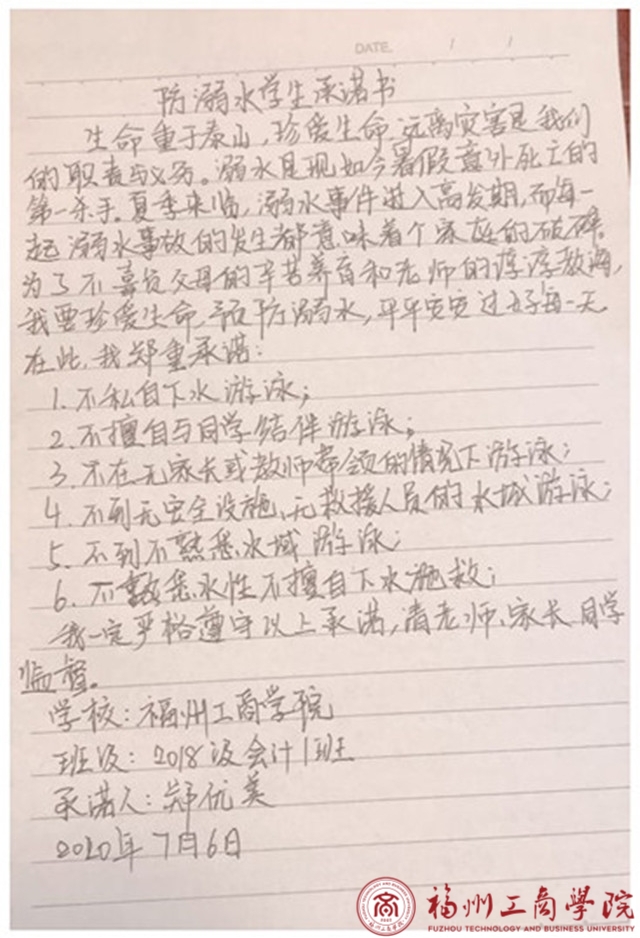 DATE. / /
防溺水学生承诺书
生命重于泰山,珍爱生命,远离灾害是我们
的职责与义务。溺水是现如今暑假意外死亡的
第一杀手。夏季来临,溺水事件进入高发期,而每一
起溺水事故的发生都意味着个家庭的破碎。
为了不辜负父母的辛苦养育和老师的谆谆教诲,
我要珍爱生命,预防溺水,平平安安过好每一天
在此,我郑重承诺:
1. 不私自下水游泳;
2. 不擅自与同学结伴游泳;
3. 不在无家长或教师带领的情况下游泳;
4. 不到无安全设施、无救援人员的水域游泳;
5. 不到不熟悉水域游泳;
6. 不熟悉水性不擅自下水施救;
我一定严格遵守以上承诺,请老师、家长、同学
监督。
学校:福州工商学院
班级:2018级会计1班
承诺人:郑优美
2020年7月6日
福州工商学院
FUZHOU TECHNOLOGY AND BUSINESS UNIVERSITY